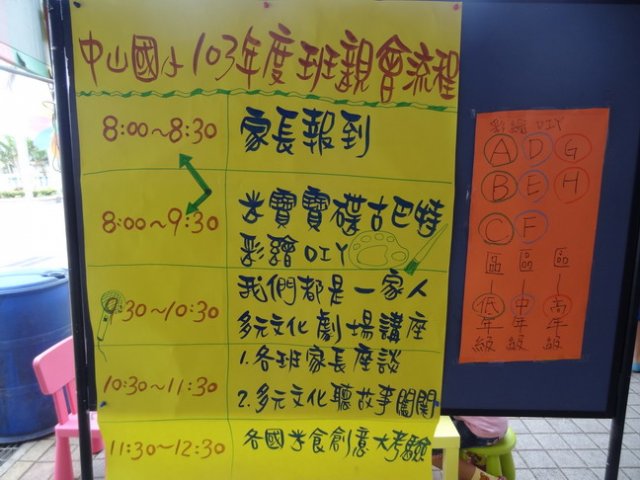 中山國小103年度班親會流程
8:00～8:30 家長報到
8:00～9:30 米寶寶碟古巴特
彩繪DIY
9:30～10:30 我們都是一家人
多元文化劇場講座
10:30～11:30 1.各班家長座談
2.多元文化聽故事闖關
11:30～12:30 各國米食創意大考驗
彩繪DIY
A D G
B E H
C F
區 區 區
｜ ｜ ｜
低 中 高
年 年 年
級 級 級